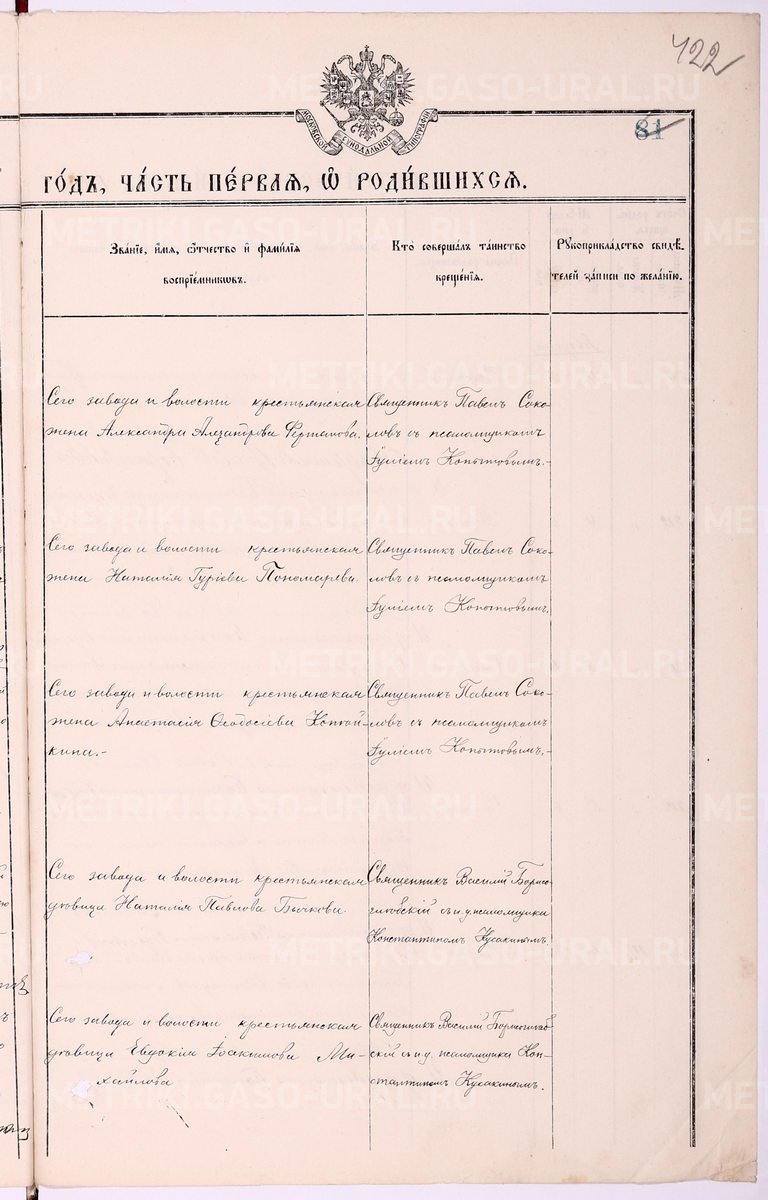 422
81
МОСКОВСКОЙ СУНОДАЛЬНОЙ ТИПОГРАФІИ
ГО́ДЪ, ЧА́СТЬ ПЕ́РВАЯ, Ѡ҆ РОДИ́ВШИХСЯ.
Зва́ніе, и҆́мя, ѻ҆́тчество и҆ фами́лія
воспріе́мникѡвъ.
Кто̀ соверша́лъ та́инство
креще́нія.
Рꙋкоприкла́дство свидѣ́-
телей за́писи по жела́нію.
Сего завода и волости крестьянская
жена Александра Александрова
Священникъ Павелъ Соко-
ловъ съ псаломщикомъ
Іуліемъ Копытовымъ.-
Сего завода и волости крестьянская
жена Наталія Гуріева Пономарева.
Священникъ Павелъ Соко-
ловъ съ псаломщикомъ
Іуліемъ Копытовымъ.
Сего завода и волости крестьянская
жена Анастасія Ѳеодосіева
кина.-
Священникъ Павелъ Соко-
ловъ съ псаломщикомъ
Іуліемъ Копытовымъ.-
Сего завода и волости крестьянская
вдовица Наталія Павлова Бычкова.
Священникъ Василій Борисо-
глѣбскій съ и.д. псаломщика
Константиномъ Кусакинымъ.
Сего завода и волости крестьянская
вдовица Евдокія Іоакимова Ми-
хайлова
Священникъ Василій Борисоглѣб
скій съ и.д. псаломщика Кон-
стантиномъ Кусакинымъ.
METRIKI.GASO-URAL.RU